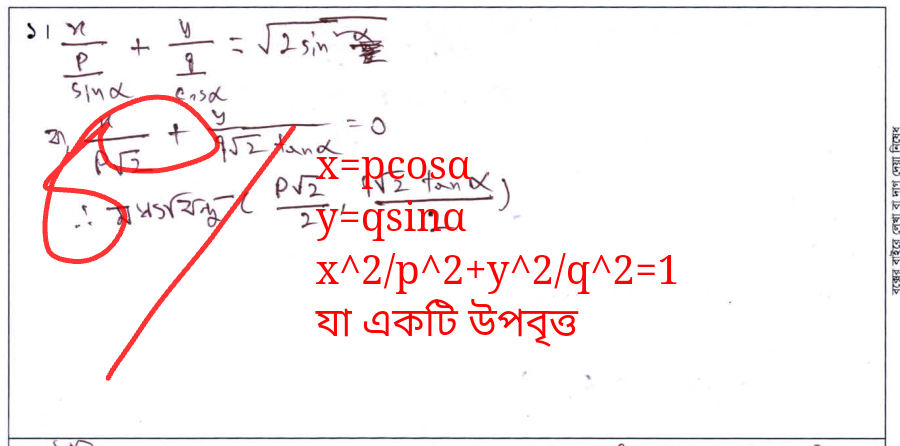 ১। x/(p/sinα) + y/(q/cosα) = √2 sin
বা, x/(p√2) + y/(q√2 tanα) = 0
∴ মধ্যবিন্দু ( p√2/2 , q√2 tanα/2 )
x=pcosα
y=qsinα
x^2/p^2+y^2/q^2=1
যা একটি উপবৃত্ত
বক্সের বাইরে লেখা বা দাগ দেয়া নিষেধ